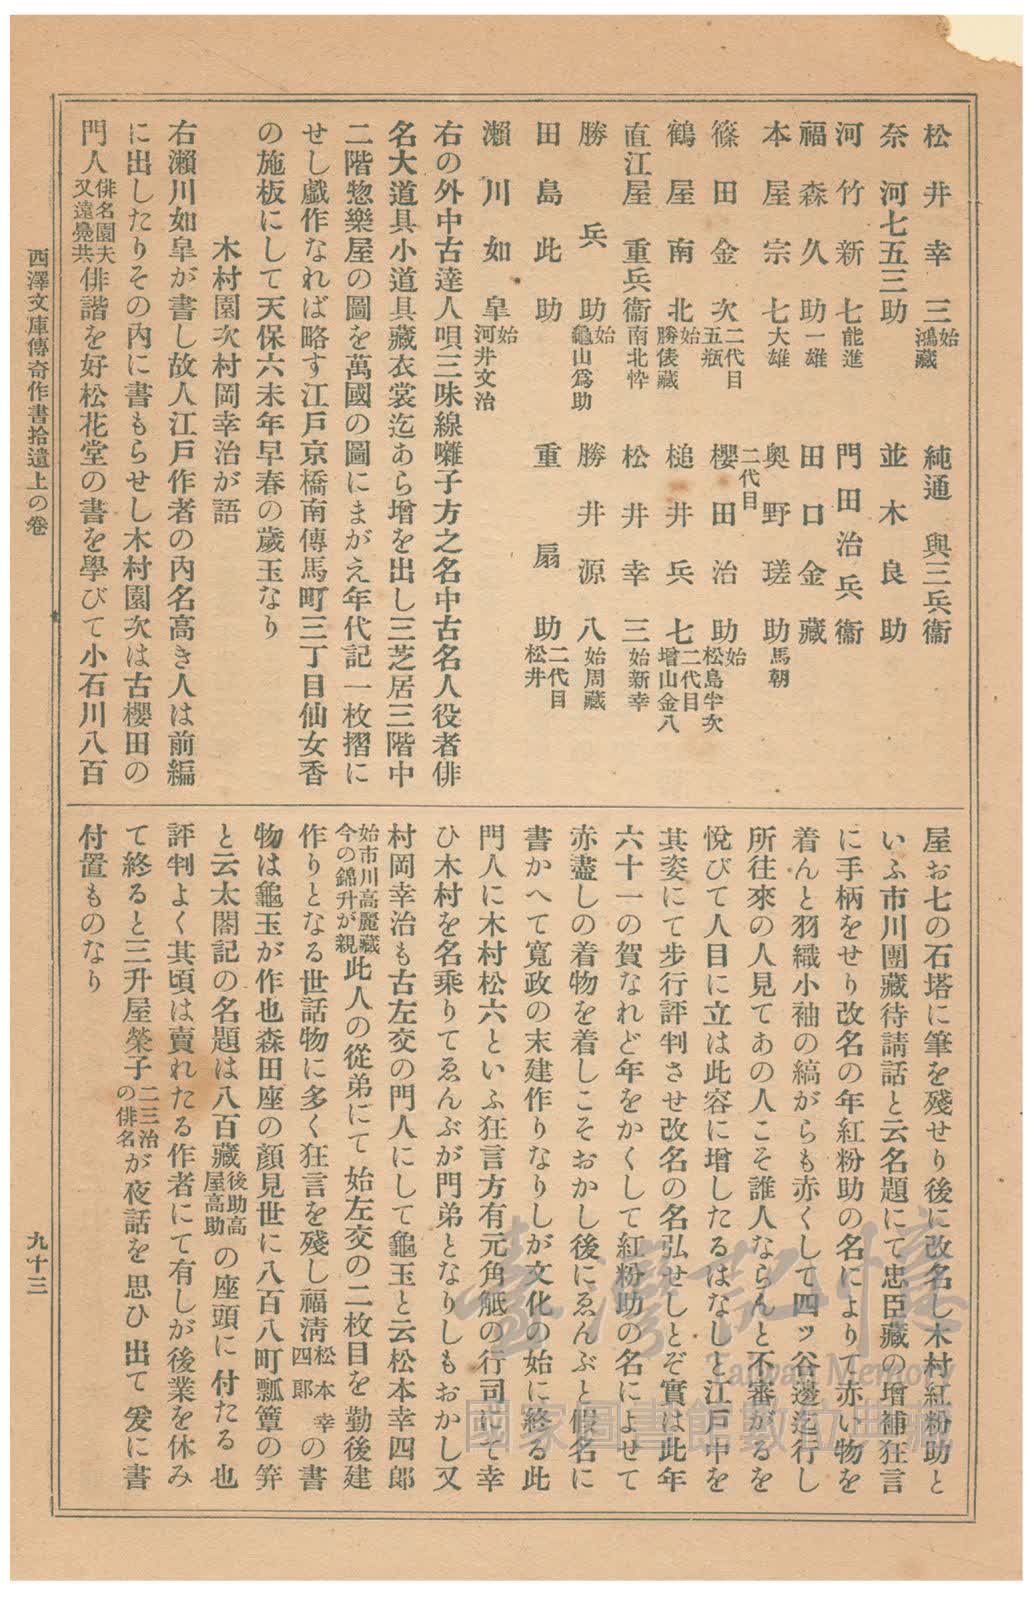 松井幸三始鴻藏
純通與三兵衞
奈河七五三助
並木良助
河竹新七能進
門田治兵衞
福森久助一雄
田口金藏
本屋宗七大雄
二代目奥野瑳助馬朝
篠田金次二代目五瓶
櫻田治助始松島半次
鶴屋南北始勝俵藏
槌井兵七二代目增山金八
直江屋重兵衞南北忰
松井幸三始新幸
勝兵助始龜山爲助
勝井源八始周藏
田島此助
重扇助二代目松井
瀨川如皐始河井文治
右の外中古達人唄三味線囃子方之名中古名人役者俳
名大道具小道具藏衣裳迄あら增を出し三芝居三階中
二階惣樂屋の圖を萬國の圖にまがえ年代記一枚摺に
せし戯作なれば略す江戸京橋南傳馬町三丁目仙女香
の施板にして天保六未年早春の歲玉なり
木村園次村岡幸治が語
右瀨川如皐が書し故人江戸作者の內名高き人は前編
に出したりその內に書もらせし木村園次は古櫻田の
門人俳名園夫又遠曻共俳諧を好松花堂の書を學びて小石川八百
屋お七の石塔に筆を殘せり後に改名し木村紅粉助と
いふ市川團藏待請話と云名題にて忠臣藏の增補狂言
に手柄をせり改名の年紅粉助の名によりて赤い物を
着んと羽織小袖の縞がらも赤くして四ッ谷邊迄行し
所往來の人見てあの人こそ誰人ならんと不審がるを
悅びて人目に立は此容に增したるはなしと江戸中を
其姿にて步行評判させ改名の名弘せしとぞ實は此年
六十一の賀なれど年をかくして紅粉助の名によせて
赤盡しの着物を着しこそおかし後にゑんぶと假名に
書かへて寬政の末建作りなりしが文化の始に終る此
門人に木村松六といふ狂言方有元角觝の行司にて幸
ひ木村を名乘りてゑんぶが門弟となりしもおかし又
村岡幸治も古左交の門人にして龜玉と云松本幸四郞
始市川高麗藏今の錦升が親此人の從弟にて始左交の二枚目を勤後建
作りとなる世話物に多く狂言を殘し福淸松本幸四郞の書
物は龜玉が作也森田座の顏見世に八百八町瓢簞の笄
と云太閤記の名題は八百藏後助高屋高助の座頭に付たる也
評判よく其頃は賣れたる作者にて有しが後業を休み
て終ると三升屋榮子二三治の俳名が夜話を思ひ出て爰に書
付置ものなり
西澤文庫傳奇作書拾遺上の卷
九十三
臺灣記憶
Taiwan Memory
國家圖書館數位典藏